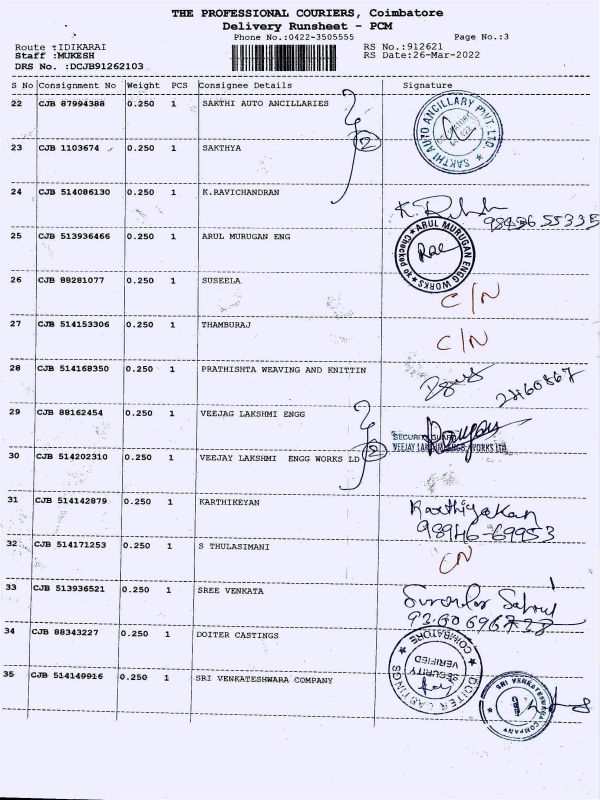 THE PROFESSIONAL COURIERS, Coimbatore
Delivery Runsheet - PCM
Phone No.:0422-3505555 Page No.:3
Route :IDIKARAI RS No.:912621
Staff :MUKESH RS Date:26-Mar-2022
DRS No. :DCJB91262103
S No Consignment No Weight PCS Consignee Details Signature
22 CJB 87994388 0.250 1 SAKTHI AUTO ANCILLARIES
SAKTHI AUTO ANCILLARY PVT. LTD.
2
23 CJB 1103674 0.250 1 SAKTHYA
24 CJB 514086130 0.250 1 K.RAVICHANDRAN
25 CJB 513936466 0.250 1 ARUL MURUGAN ENG
ARUL MURUGAN ENGG WORKS
Checked ok
26 CJB 88281077 0.250 1 SUSEELA
C/N
27 CJB 514153306 0.250 1 THAMBURAJ
C/N
28 CJB 514168350 0.250 1 PRATHISHTA WEAVING AND KNITTIN
29 CJB 88162454 0.250 1 VEEJAG LAKSHMI ENGG
SECURITY GUARD
2
VEEJAY LAKSHMI ENGG. WORKS LTD
30 CJB 514202310 0.250 1 VEEJAY LAKSHMI ENGG WORKS LD
31 CJB 514142879 0.250 1 KARTHIKEYAN
Karthiyekan
98946-69953
32 CJB 514171253 0.250 1 S THULASIMANI
CN
33 CJB 513936521 0.250 1 SREE VENKATA
34 CJB 88343227 0.250 1 DOITER CASTINGS
DOITER CASTINGS COIMBATORE
SECURITY VERIFIED
35 CJB 514149916 0.250 1 SRI VENKATESHWARA COMPANY
SRI VENKATESHWARA COMPANY